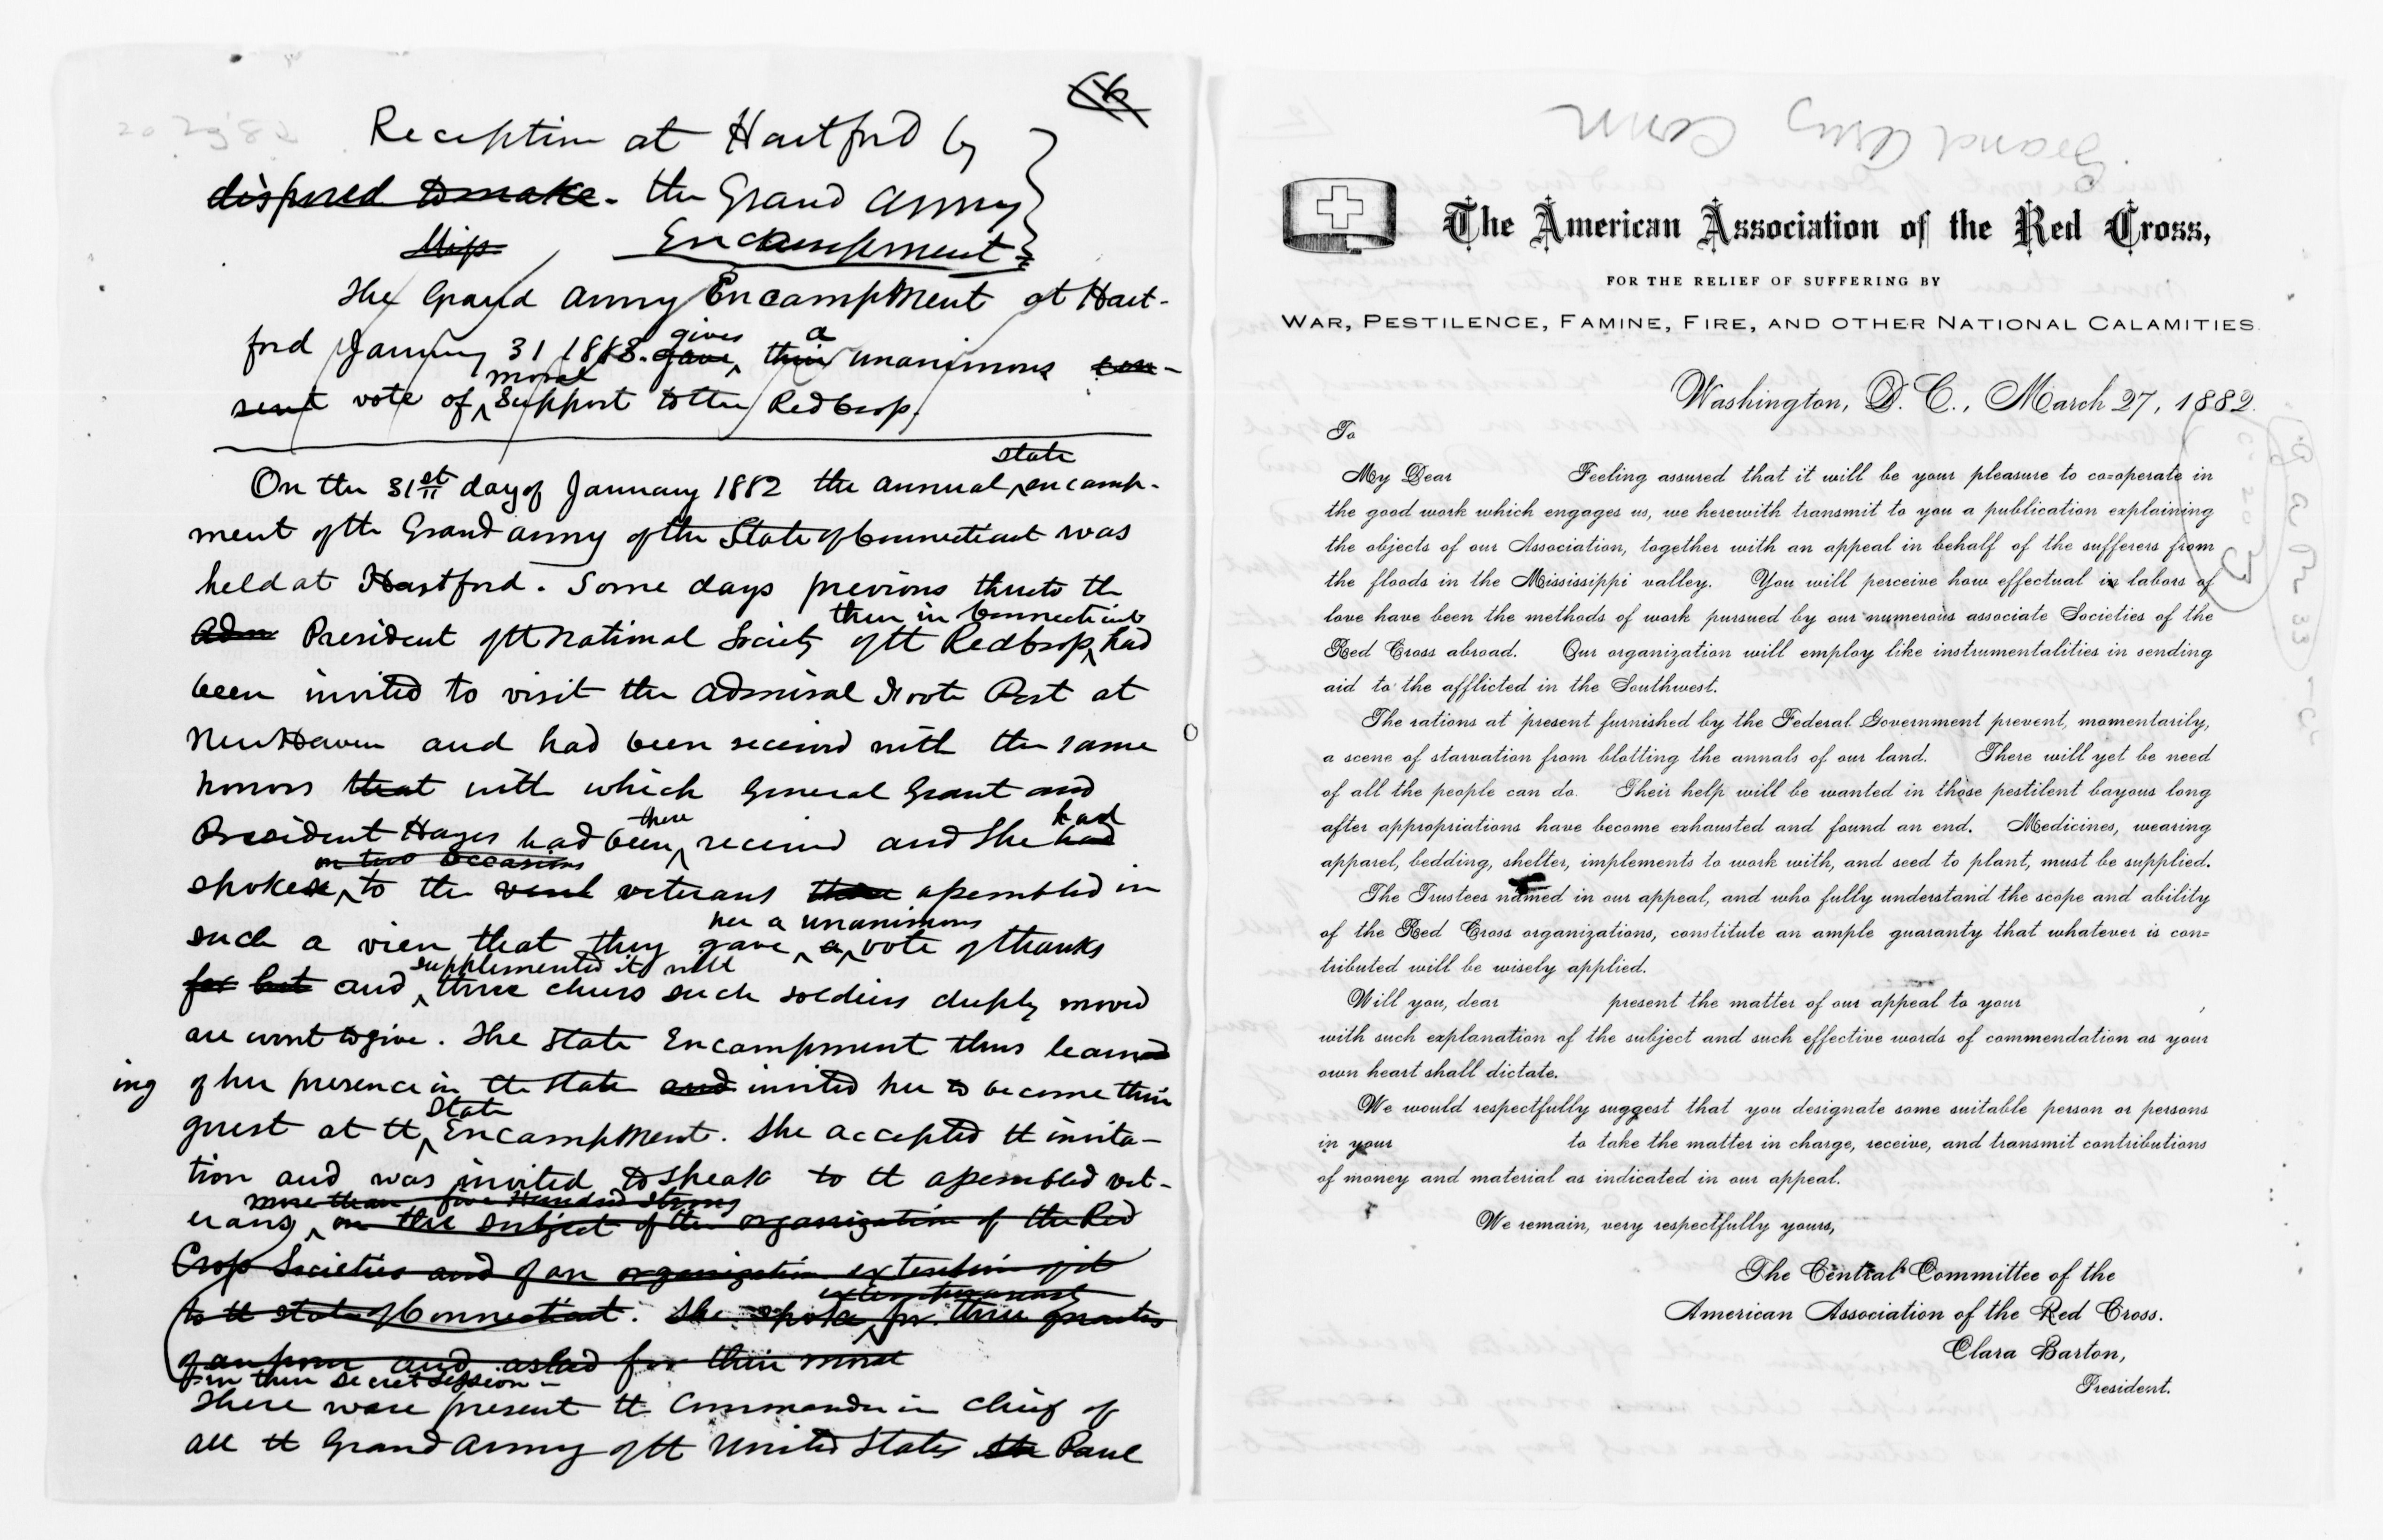 Reception at Hartford by
disposed to make - the Grand Army
Encampment
The Grand Army Encampment at Hart-
gives a
ford January 31 1883. gave, their unanimous con-
moral
sent vote of support to the Red Cross.
state
On the 31st day of January 1882 the annual encamp-
ment of the Grand army of the State of Connecticut was
held at Hartford. Some days previous thereto the
then in Connecticut
Adm President of the National Society of the Red Cross, had
been invited to visit the Admiral Foote Post at
New Haven and had been received with the same
honors that with which General Grant and
there had
President Hayes had been received and She had
on two occasions
spoken to the veterans assembled in
her a unanimous
such a vien that they gave a vote of thanks
supplemented it with
for but and three cheers such soldiers deeply moved
are wont to give. The State Encampment thus learned
ing of her presence in the state and invited her to become their
State
guest at the Encampment. She accepted the invita-
tion and was invited to speak to the assembled vet-
more than five Hundred strong
erans, on the subject of the organization of the Red
Cross Societies and of an organization extension of it
extemporaneously
to the state of Connecticut. She spoke for three quarters
of an hour and asked for their moral
in their secret session -
There were present the Commander in Chief of
all the Grand Army of the United States Paul
Grand Army Conn
The American Association of the Red Cross,
FOR THE RELIEF OF SUFFERING BY
WAR, PESTILENCE, FAMINE, FIRE, AND OTHER NATIONAL CALAMITIES.
Washington, D. C., March 27, 1882.
To
My Dear Feeling assured that it will be your pleasure to co=operate in
the good work which engages us, we herewith transmit to you a publication explaining
the objects of our Association, together with an appeal in behalf of the sufferers from
the floods in the Mississippi valley. You will perceive how effectual in labors of
love have been the methods of work pursued by our numerous associate Societies of the
Red Cross abroad. Our organization will employ like instrumentalities in sending
aid to the afflicted in the Southwest.
The rations at present furnished by the Federal Government prevent, momentarily,
a scene of starvation from blotting the annals of our land. There will yet be need
of all the people can do. Their help will be wanted in those pestilent bayous long
after appropriations have become exhausted and found an end. Medicines, wearing
apparel, bedding, shelter, implements to work with, and seed to plant, must be supplied.
The Trustees named in our appeal, and who fully understand the scope and ability
of the Red Cross organizations, constitute an ample guaranty that whatever is con=
tributed will be wisely applied.
Will you, dear present the matter of our appeal to your ,
with such explanation of the subject and such effective words of commendation as your
own heart shall dictate.
We would respectfully suggest that you designate some suitable person or persons
in your to take the matter in charge, receive, and transmit contributions
of money and material as indicated in our appeal.
We remain, very respectfully yours,
The Central Committee of the
American Association of the Red Cross.
Clara Barton,
President.